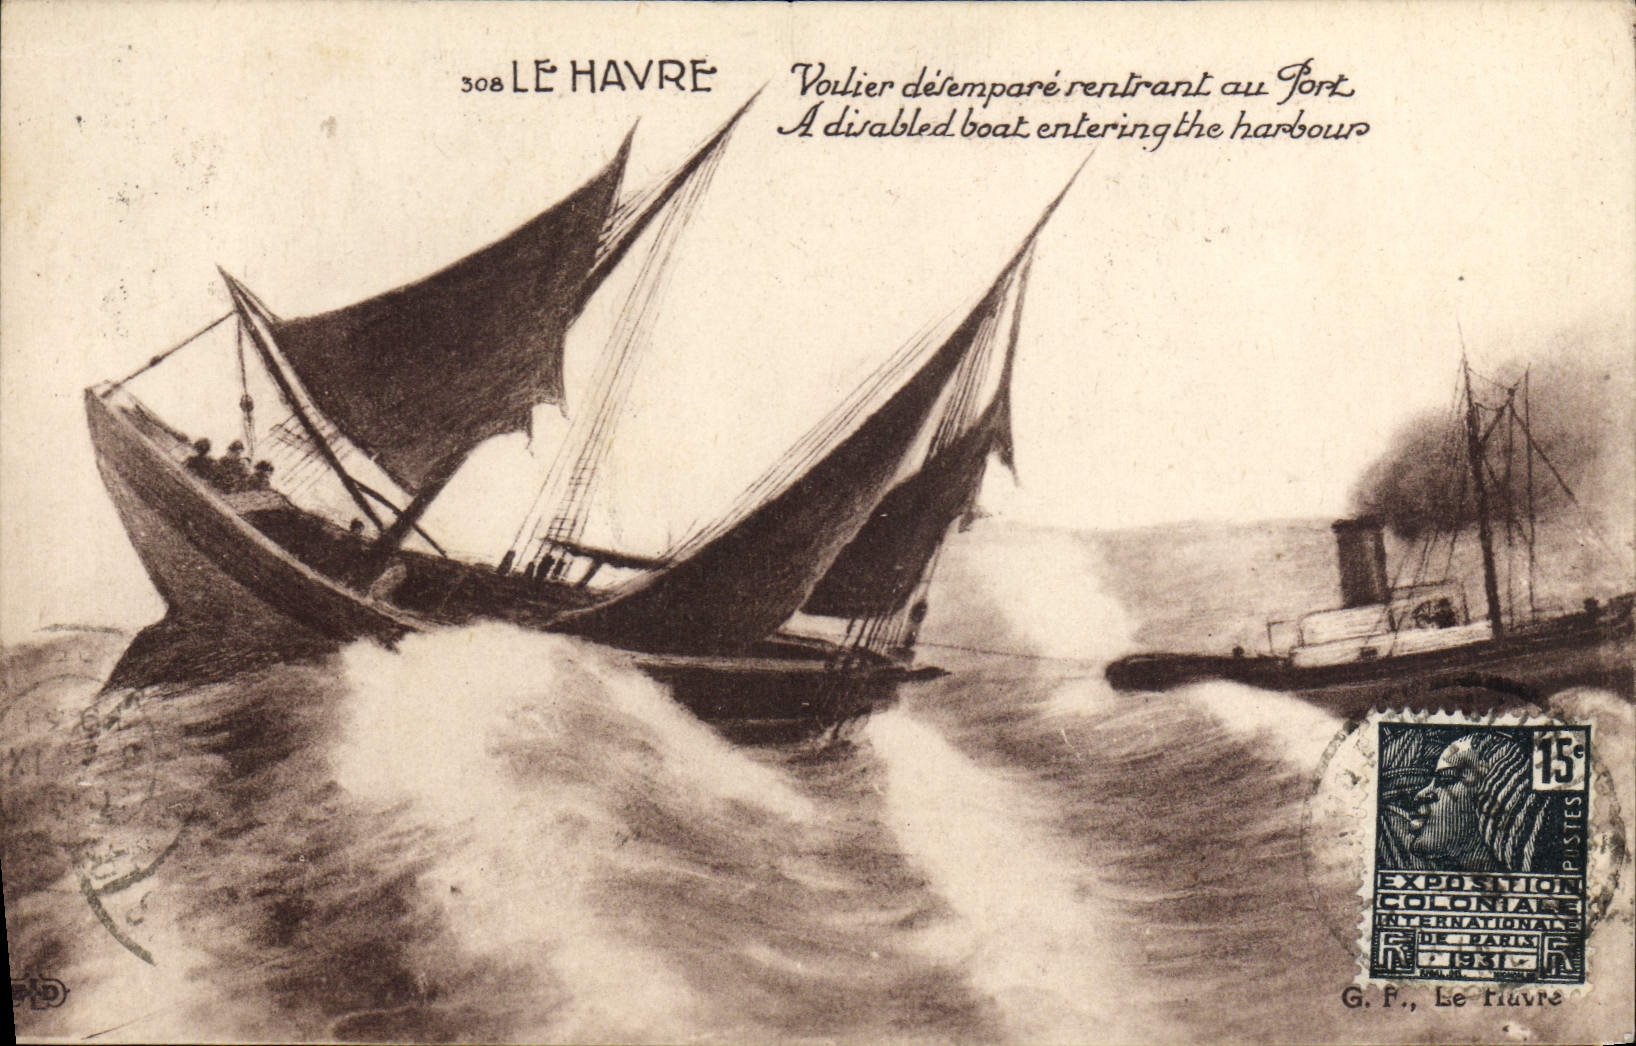 308 LE HAVRE
Voilier désemparé rentrant au Port
A disabled boat entering the harbour
15c
POSTES
EXPOSITION
COLONIALE
INTERNATIONALE
DE PARIS
1931
RF
G. F., Le Havre